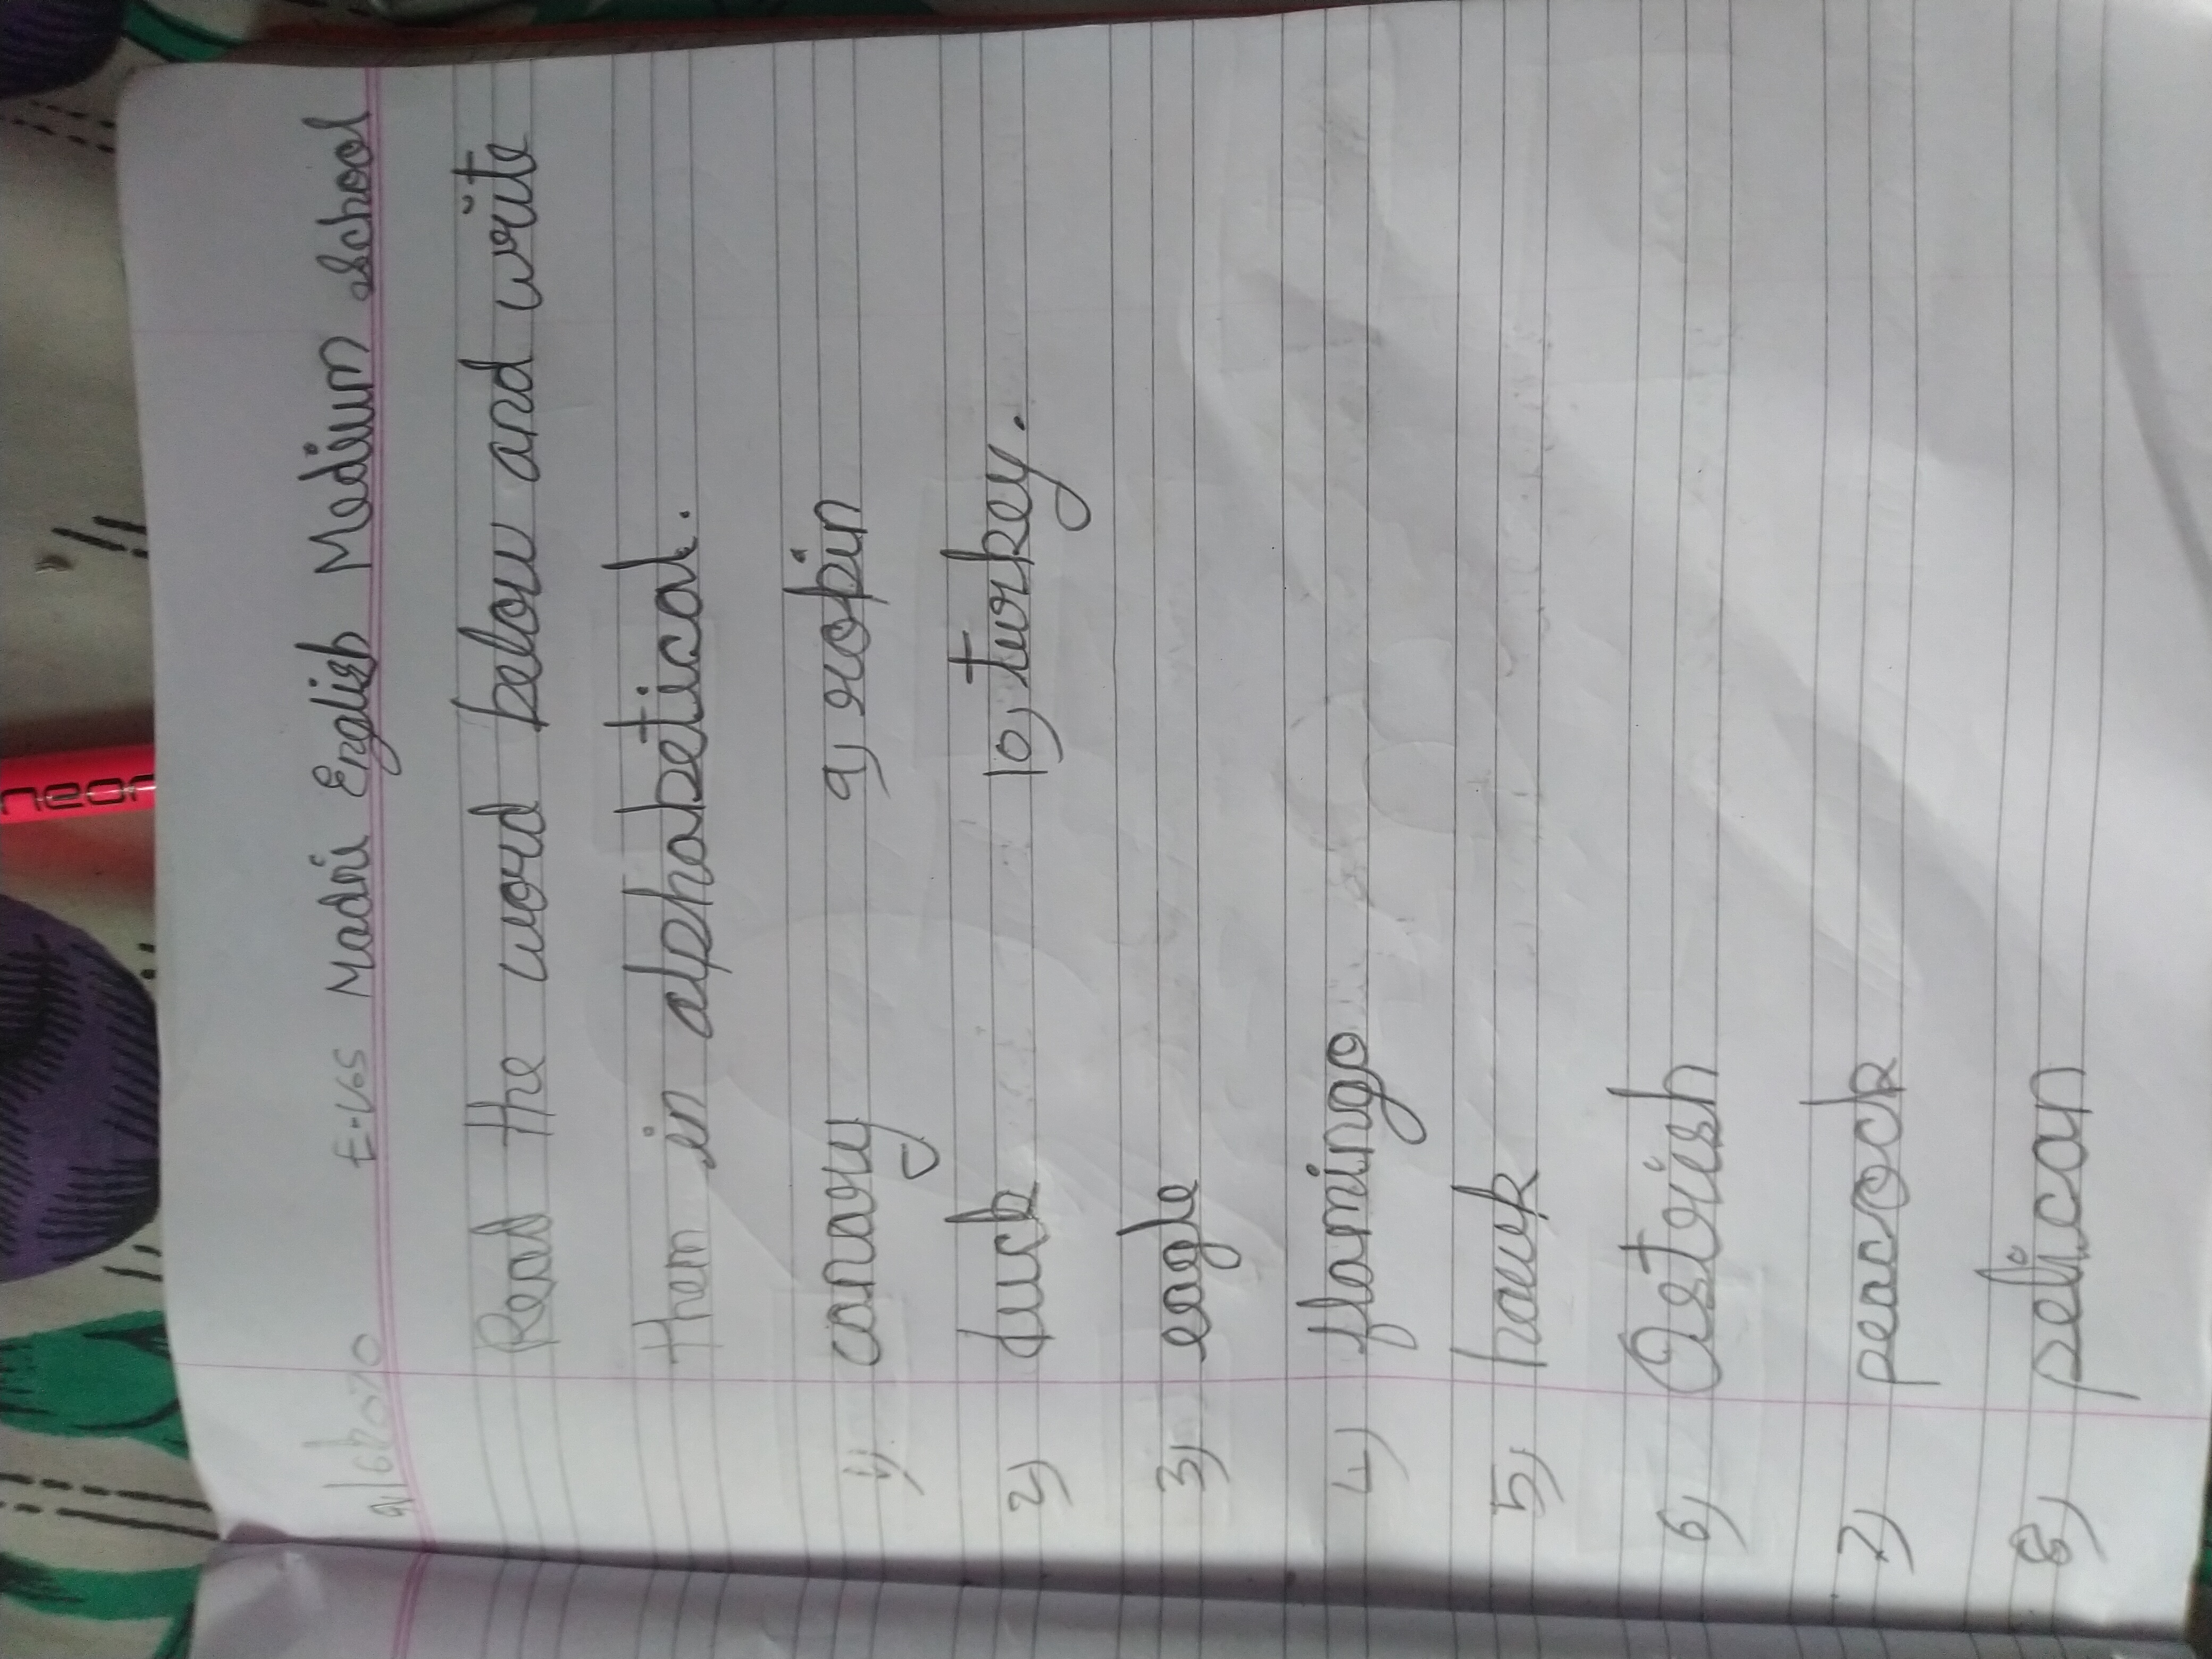 E-165 Madni English Medium School
Read the word below and write
them in alphabetical.
1) canary 9) robin
2) duck 10) turkey.
3) eagle
4) flamingo
5) hawk
6) Ostrish
7) peacock
8) pelican
neon